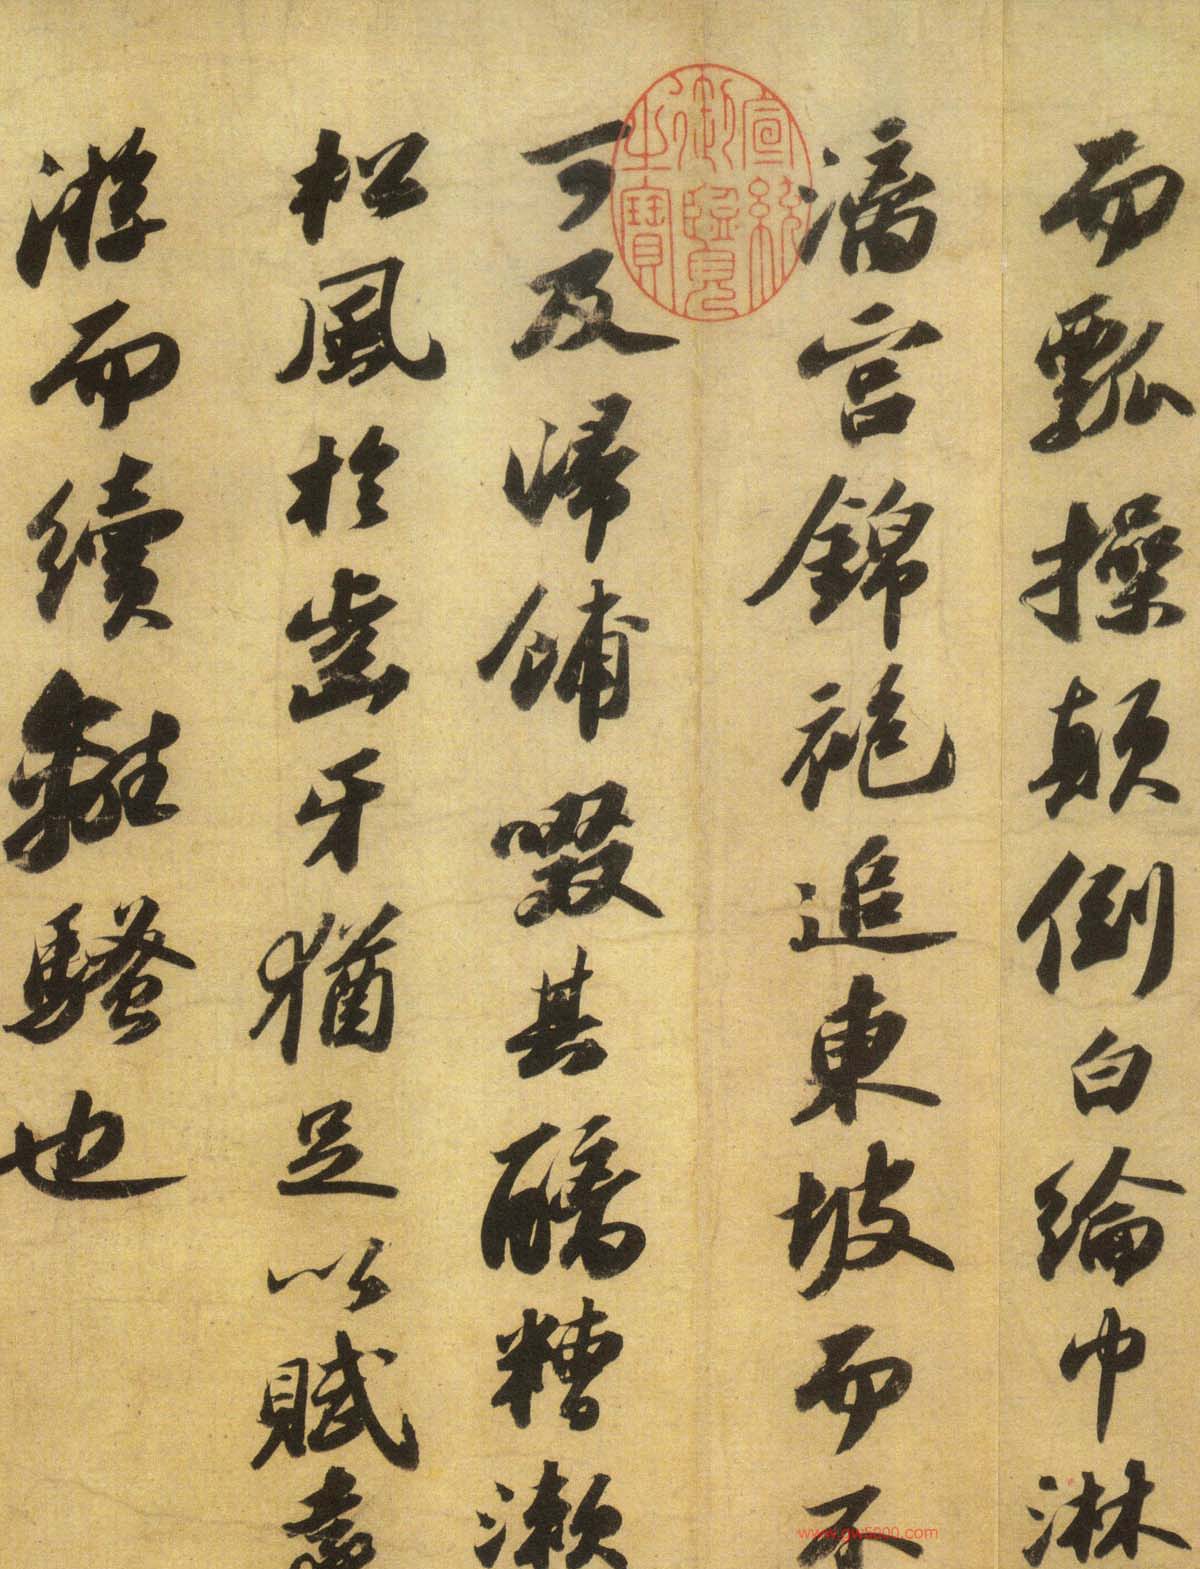 而瓢操顛倒白綸巾淋
漓宮錦袍追東坡而不
可及歸餔啜其醨糟漱
松風於齒牙猶足以賦遠
游而續離騷也
宣統御覽之寶
www.gw5000.com